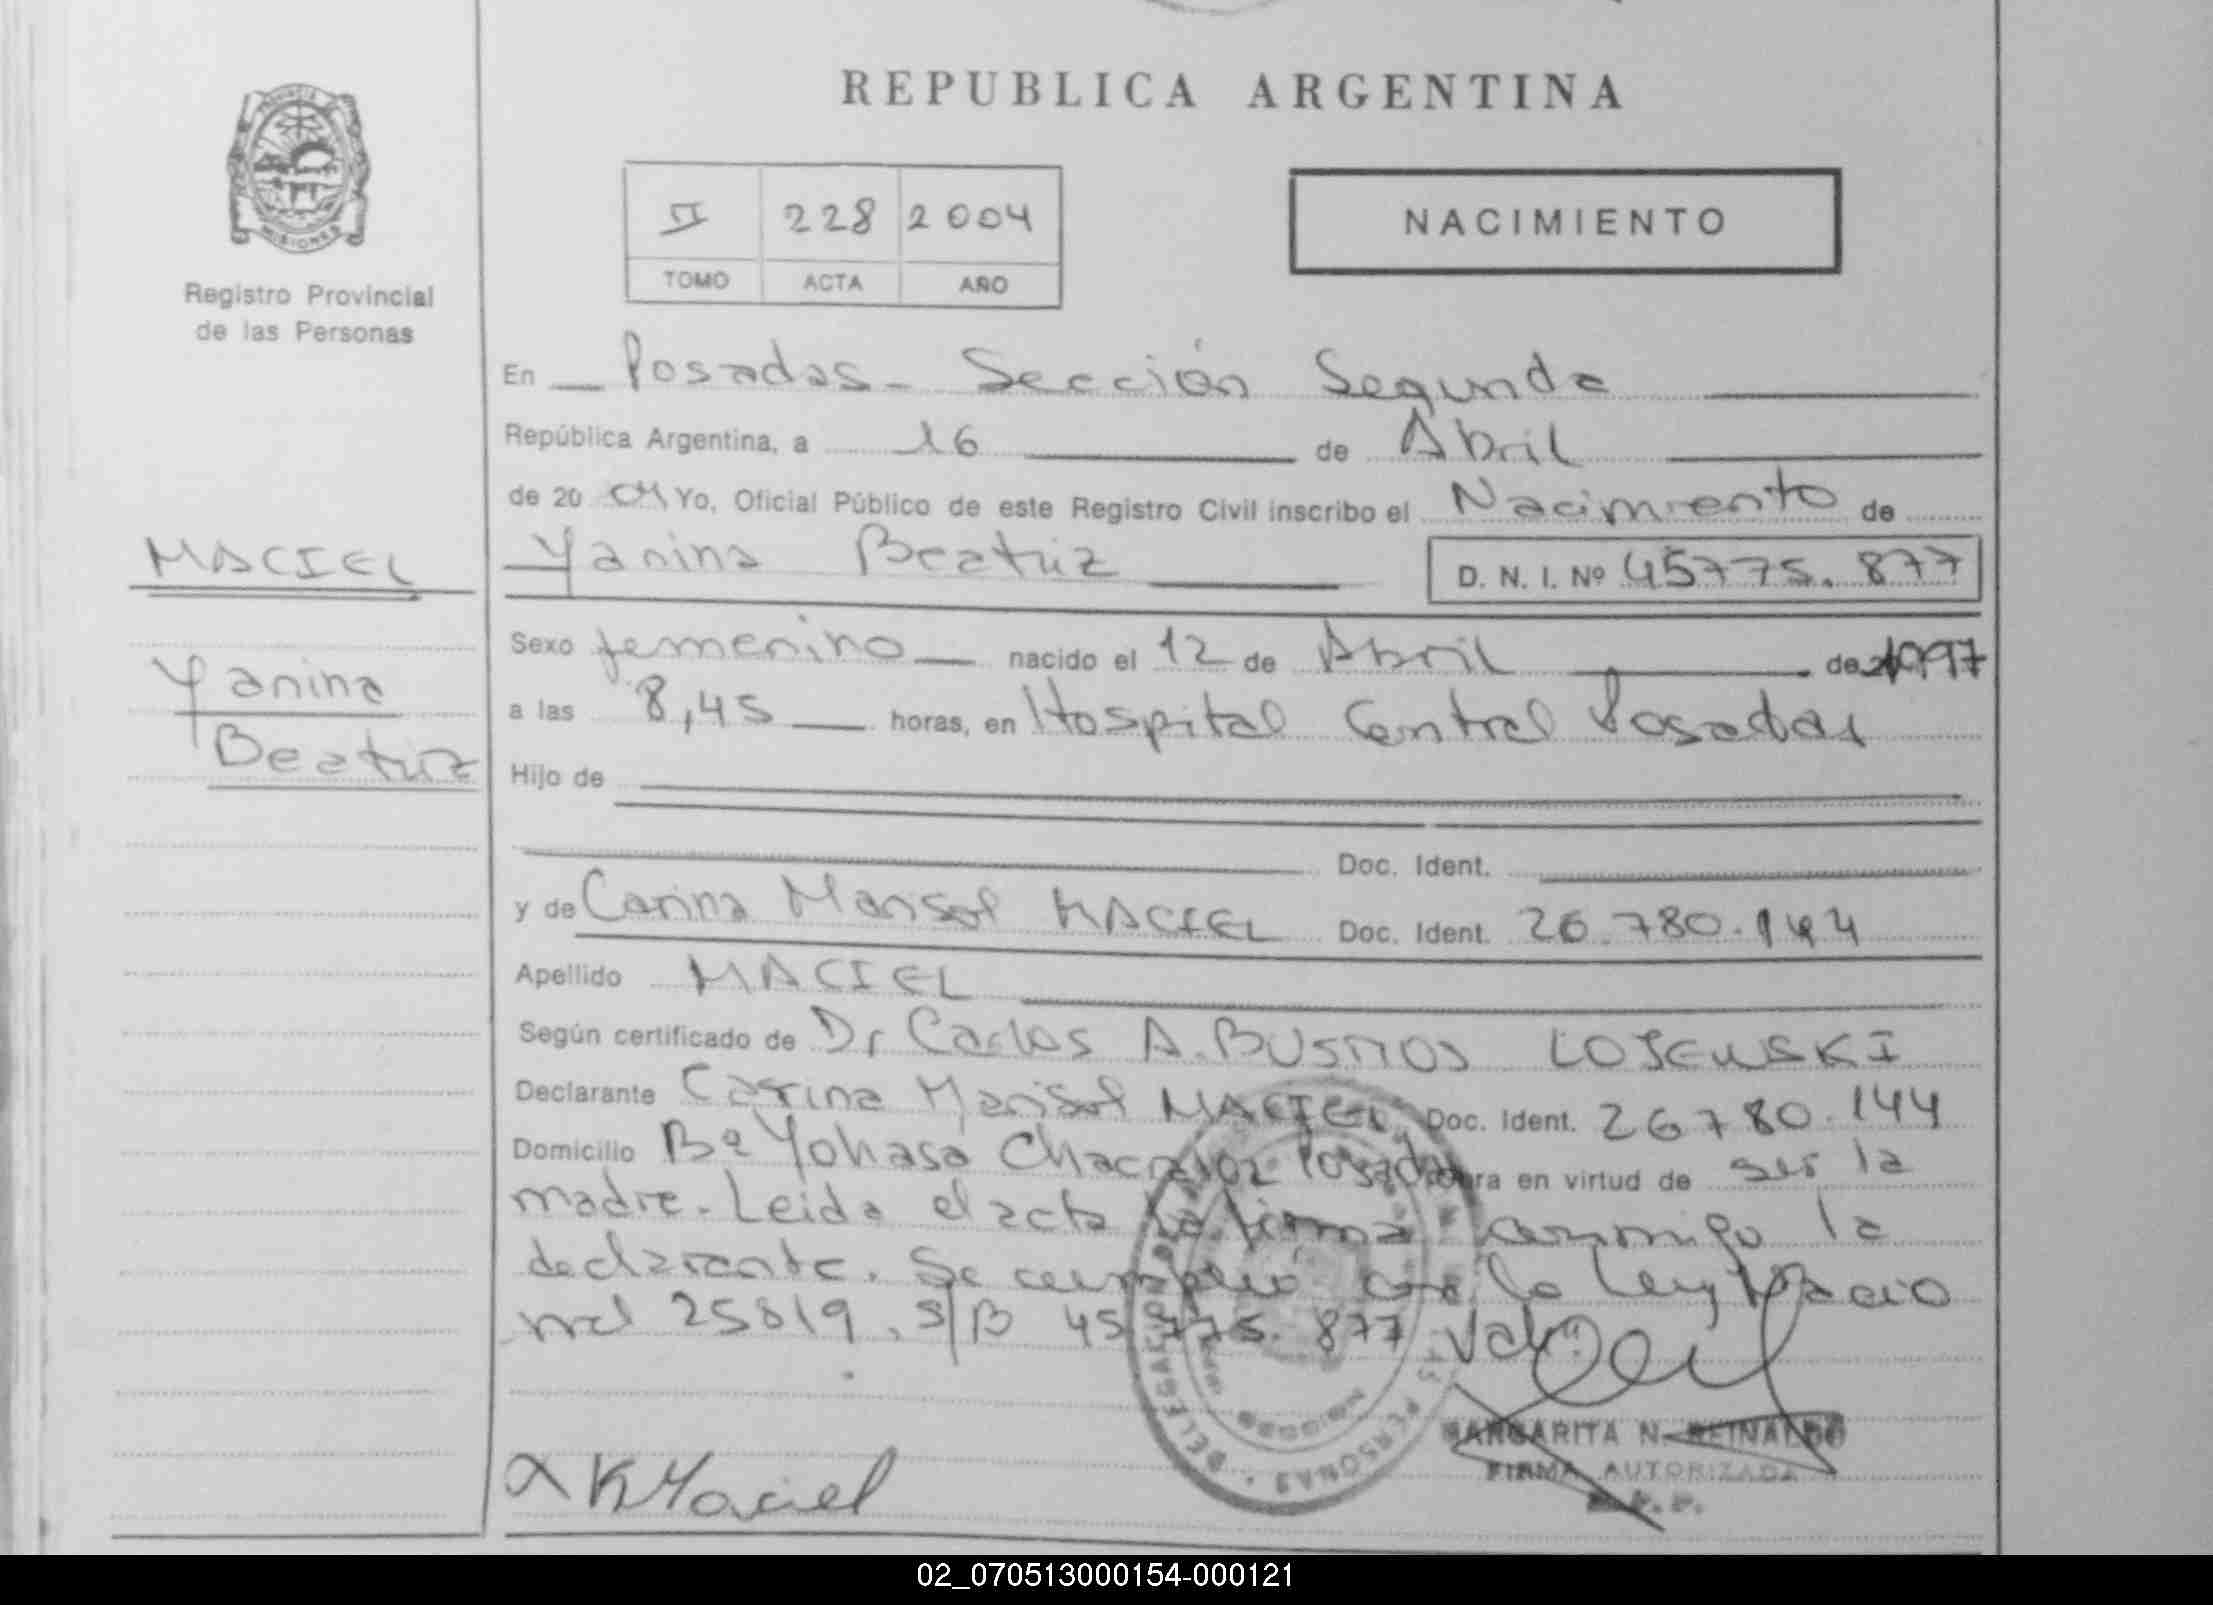 REPUBLICA ARGENTINA
PROVINCIA
MISIONES
Registro Provincial
de las Personas
II 228 2004
TOMO ACTA AÑO
NACIMIENTO
En Posadas - Sección Segunda
República Argentina, a 16 de Abril
de 20 04 Yo, Oficial Público de este Registro Civil inscribo el Nacimiento de
MACIEL
Yanina Beatriz D. N. I. Nº 45775.877
Yanina
Beatriz
Sexo femenino nacido el 12 de Abril de 1997
a las 8,45 horas, en Hospital Central Posadas
Hijo de
Doc. Ident.
y de Carina Marisol MACIEL Doc. Ident. 26.780.144
Apellido MACIEL
Según certificado de Dr Carlos A. BUSTOS LOSEWSKI
Declarante Carina Marisol MACIEL Doc. Ident. 26780.144
Domicilio Bº Yohasa Chacra Posadas obra en virtud de ser la
madre. Leida el acta la firma conmigo la
declarante. Se cumplió con la Ley Nacio
nal 25819. S/B 45775.877 Vale
MARGARITA N. REINALDO
FIRMA AUTORIZADA
DELEGACION
PERSONAS
Maciel
02_070513000154-000121